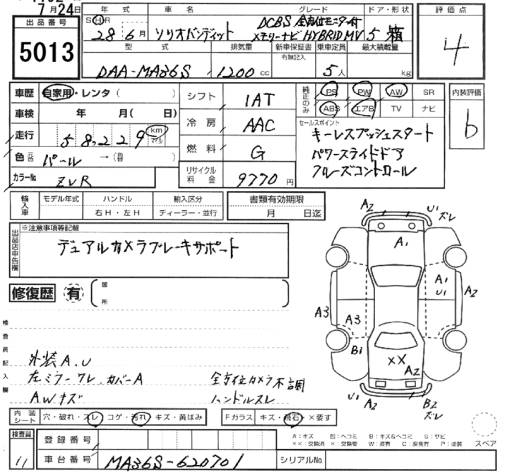 7月24日
出品番号 年式 車名 グレード ドア・形状 評価点
5013
28年 6月 ソリオバンディット DCBS 全方位モニター付 メモリーナビ HYBRID MV 5 箱 4
型式 排気量 新車保証書 乗車定員 最大積載量
有無記入
DAA-MA36S 1200 cc 5人 kg
車歴 自家用・レンタ( ) シフト 1AT 純正のみ PS PW AW SR 内装評価
ABS エアB TV ナビ
車検 年 月( 日) 冷房 AAC セールスポイント b
走行 58,229 km キーレスプッシュスタート
燃料 G パワースライドドア
色 パール クルーズコントロール
カラーNo ZVR リサイクル料金 9770円
輸入車 モデル年式 ハンドル 輸入区分 書類有効期限
右H・左H ディーラー・並行 月 日迄
出品店申告欄 ※注意事項等記載
デュアルカメラブレーキサポート
修復歴 有 箇所
A2 U1 ズレ
A1
A1
U1 A2
A3 A3
B1
XX
A2
U1 A2 B2 ズレ
検査員記入欄
外装A.U
左ミラーワレ カバーA 全方位カメラ不調
AWキズ ハンドルスレ
内装シート 穴・破れ・スレ コゲ・汚れ キズ・黄ばみ Fガラス キズ・飛石 ×要す
A:キズ B:ヘコミ
スペア
検査員 登録番号
11 車台番号 MA36S-620701 シリアルNo